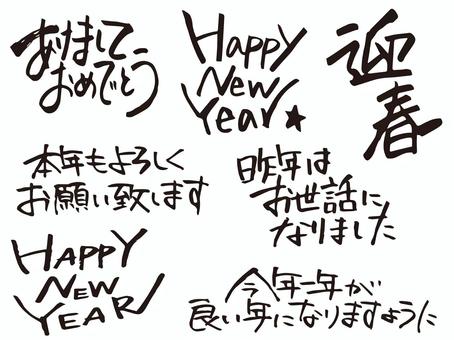 あけまして
おめでとう
Happy
New
Year★
迎春
本年もよろしく
お願い致します
昨年は
お世話に
なりました
HAPPY
NEW
YEAR
今年一年が
良い年になりますように